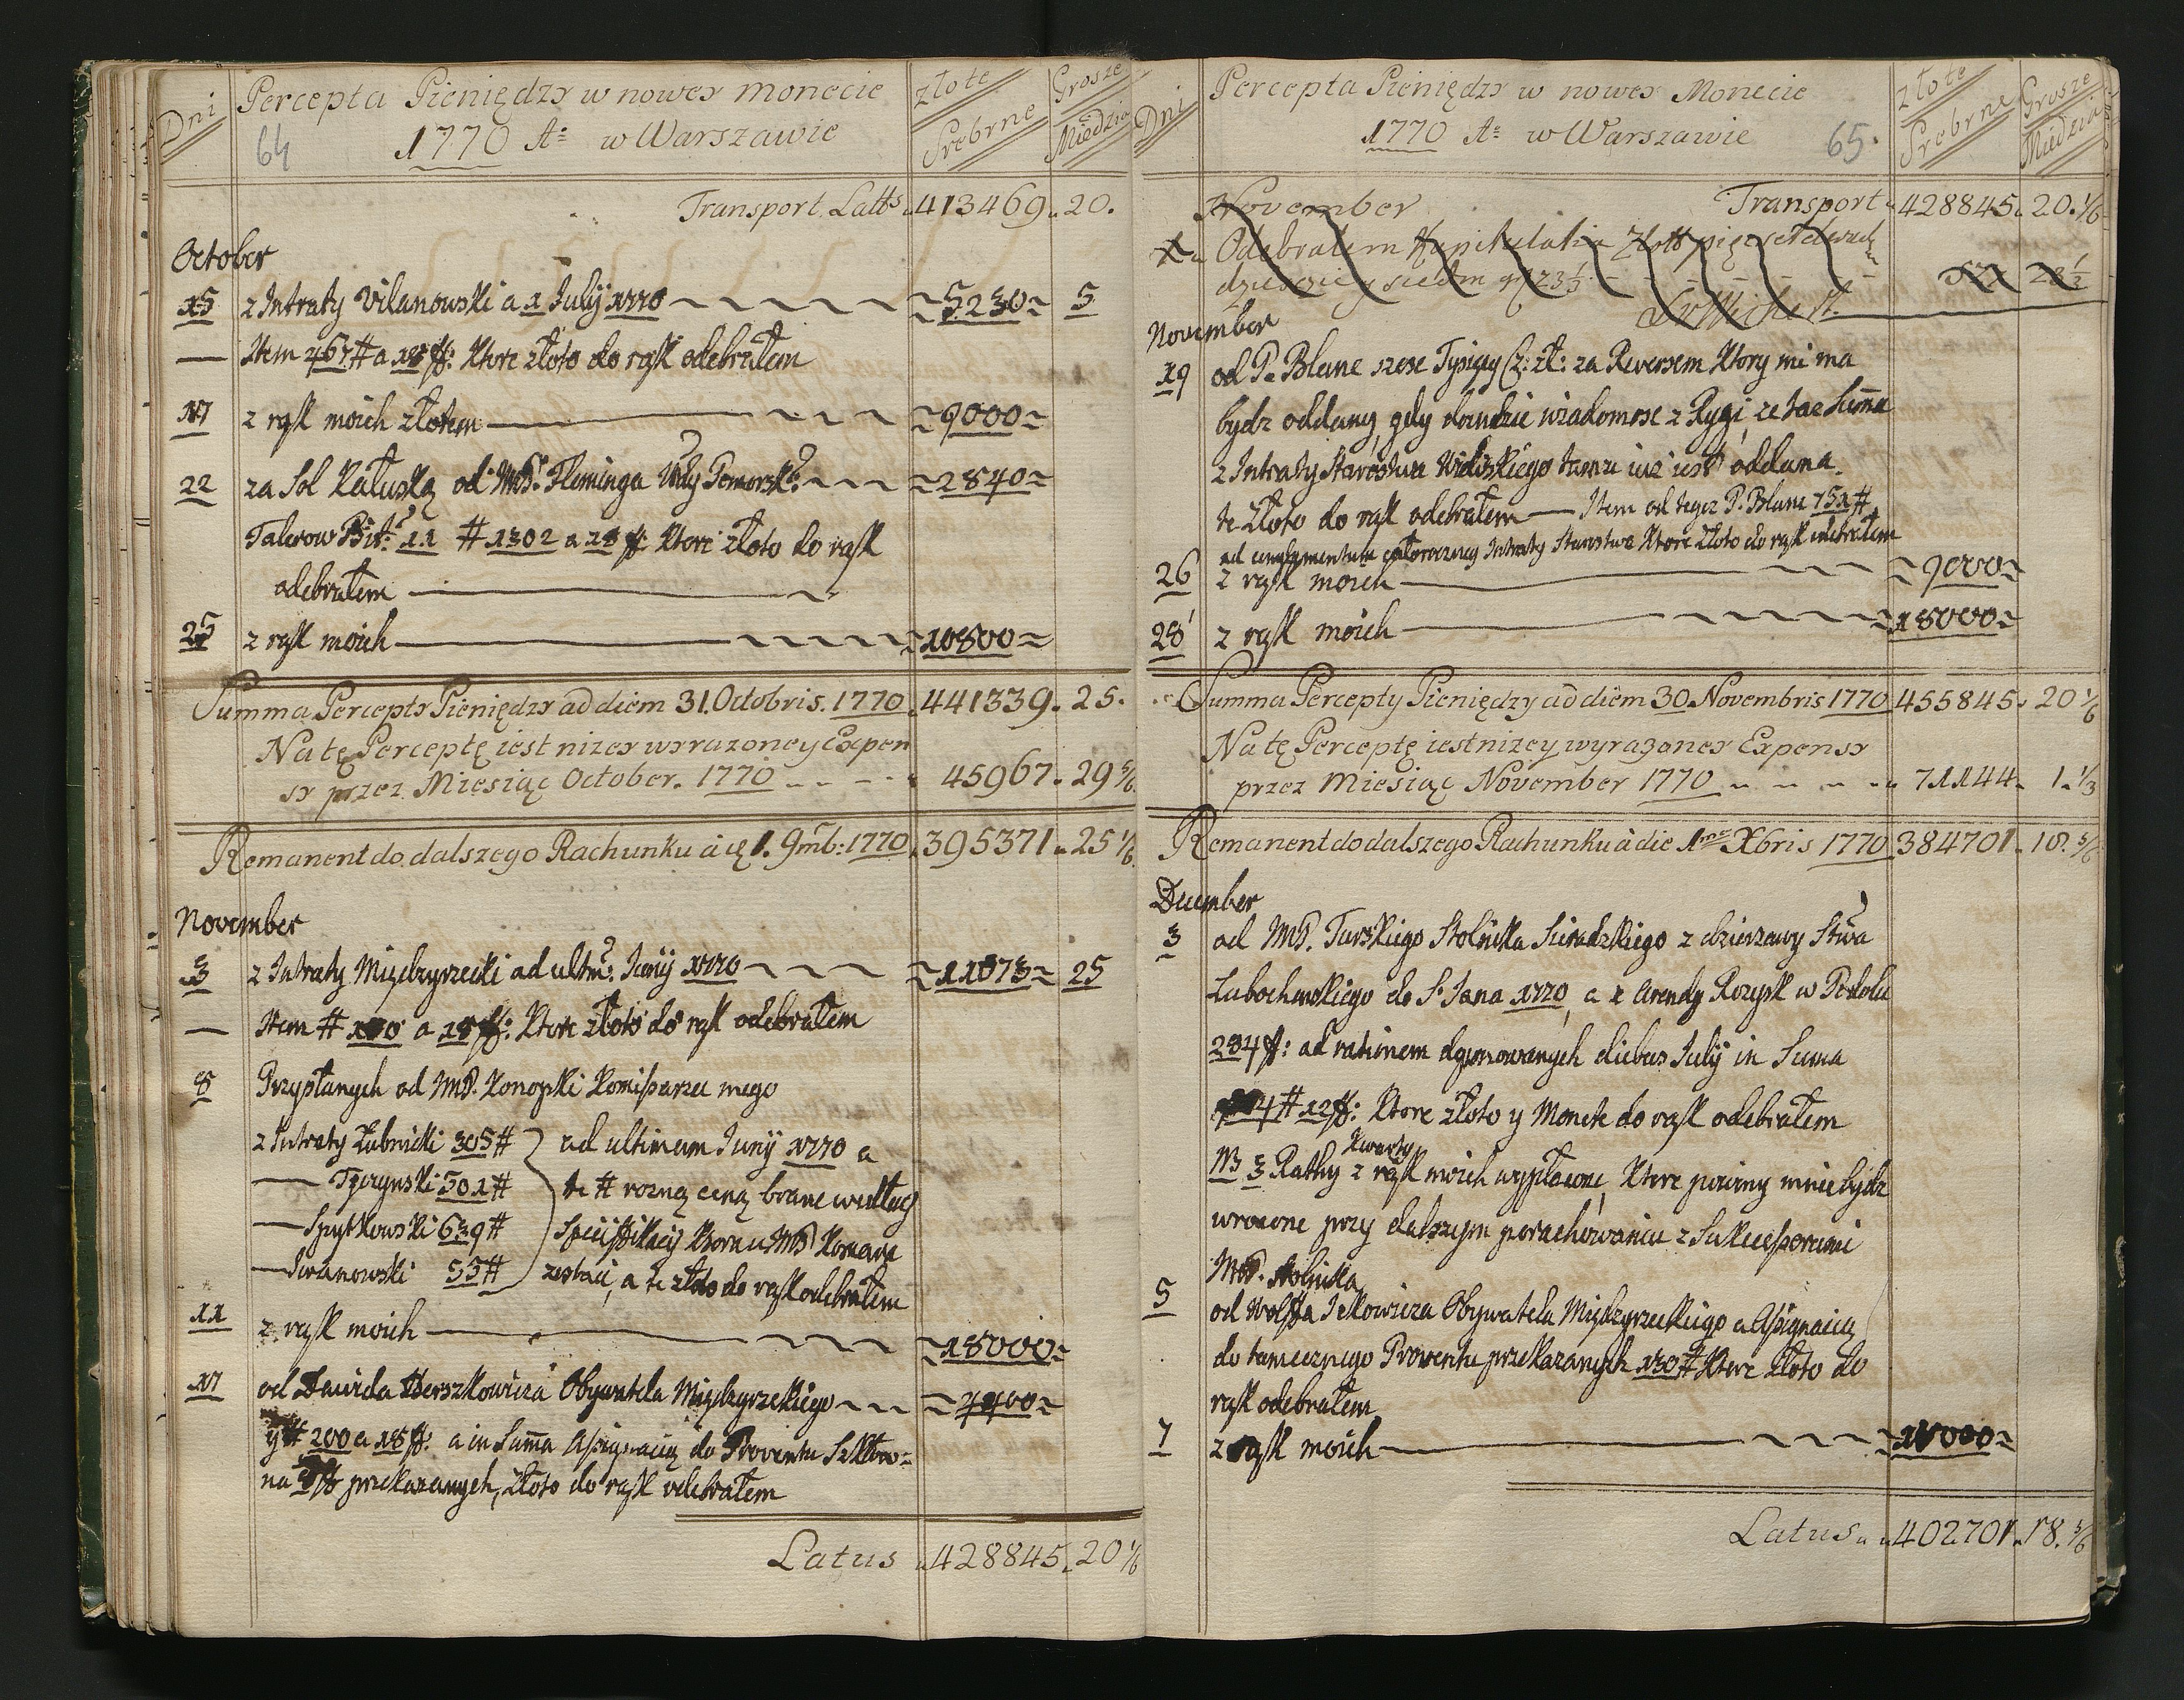 Dni
Percepta Pieniędzy w nowey monecie
złote Srebrne
Grosze Miedzia
64
1770 Aº w Warszawie
Transport Latts 413469. 20.
October
15 z Intraty Vilanowski a 1 July 1770 5230 5
— Item 467# a 18 ff: Ktore złoto do rąk odebrałem
17 z rąk moich złotem 9000
22 za Sol Kałuską od Fleminga Wdy Pomorsk: 2840
Talerow Bit: 11 # 1302 a 18 ff: Ktore złoto do rąk
odebrałem
25 z rąk moich 10800
Summa Percepty Pieniędzy ad diem 31. Octobris. 1770 441339. 25.
Na tę Perceptę iest niżey wyrażoney Expen
sy przez Miesiąc October. 1770 45967. 29 5/6
Remanent do dalszego Rachunku 1. 9mb: 1770 395371. 25 1/6
November
3 z Intraty Międzyrzecki ad ultm: Juny 1770 11073 25
— Item # a 18 ff: Ktore złoto do rąk odebrałem
8 Przysłanych od Konopki Komisarza mego
z Intraty Łubnicki 305# ad ultimam Juny 1770 a
— Tyczynski 501# te # rozną ceną brane według
— Spytkowski 639#
— 55# a te złoto do rąk odebrałem
11 z rąk moich 18000
17 od Dawida Herszkowicza Obywatela Międzyrzeckiego 4400
y # 200 a 18 ff: a in Summa Assignacią do Proventu
na przekazanych, złoto do rąk odebrałem
Latus 428845. 20 1/6
Dni
Percepta Pieniędzy w nowey Monecie
złote Srebrne
Grosze Miedzia
1770 Aº w Warszawie
65.
November Transport 428845. 20. 1/6
Odebrałem złott pięcset dwa
dziescie y siedm gr 23 1/2 527 23 1/2
November
19 od P. Blanc szesc Tysięcy Cz: zł: za Rewersem Ktory mi ma
bydz oddany, gdy doydzie wiadomosc z Rygi, ze taz Summa
z Intraty Starostwa tamze iuz iest oddana.
te złoto do rąk odebrałem — Item od tegoz P. Blanc 751#
ad Intraty Starostwa Ktore złoto do rąk odebrałem
26 z rąk moich 9000
28 z rąk moich 18000
Summa Percepty Pieniędzy ad diem 30. Novembris 1770 455845. 20 1/6
Na tę Perceptę iest niżey wyrażoney Expensy
przez Miesiąc November 1770 71144. 1. 1/3
Remanent do dalszego Rachunku à die 1ma Xbris 1770 384701. 18. 5/6
December
3 od Turskiego Stolnika Sieradzkiego z dzierzawy Stwa
Lubochenskiego do S. Jana 1770, a z Arendy w Podolu
284 ff: ad rationem diebus July in Suma
# 12 ff: Ktore złoto y Monete do rąk odebrałem
NB 3 Rathy Kwarty z rąk moich wypłacone, Ktore powinny mnie bydz
wrocone przy dalszym porachowaniu z Sukcessorami
Stolnika
5 od Wolffa Obywatela Międzyrzeckiego a Assignacią
do tamecznego Proventu przekazanych # Ktore złoto do
rąk odebrałem
7 z rąk moich 18000
Latus 402701. 18. 5/6